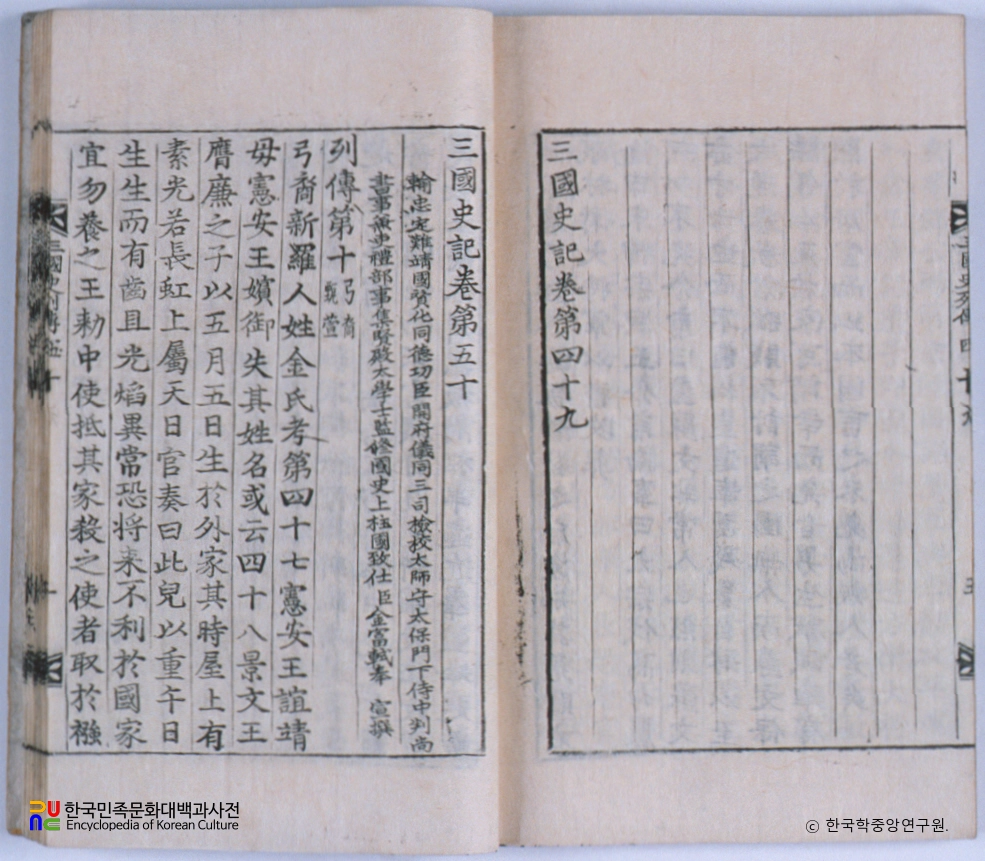 三國史記卷第四十九
三國史記卷第五十
輸忠定難靖國贊化同德功臣開府儀同三司檢校太師守太保門下侍中判尙
書事兼吏禮部事集賢殿大學士監修國史上柱國致仕臣金富軾奉 宣撰
列傳第十 弓裔 甄萱
弓裔新羅人姓金氏考第四十七憲安王誼靖
母憲安王嬪御失其姓名或云四十八景文王
膺廉之子以五月五日生於外家其時屋上有
素光若長虹上屬天日官奏曰此兒以重午日
生生而有齒且光焰異常恐將來不利於國家
宜勿養之王勅中使抵其家殺之使者取於襁
한국민족문화대백과사전
Encyclopedia of Korean Culture
ⓒ 한국학중앙연구원.